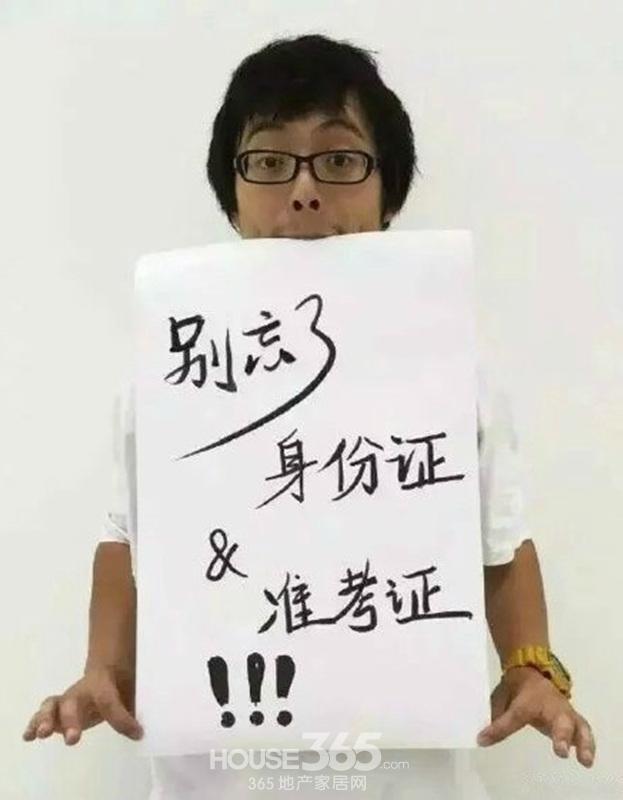 别忘了
身份证
&
准考证
!!!
HOUSE365.com
365地产家居网